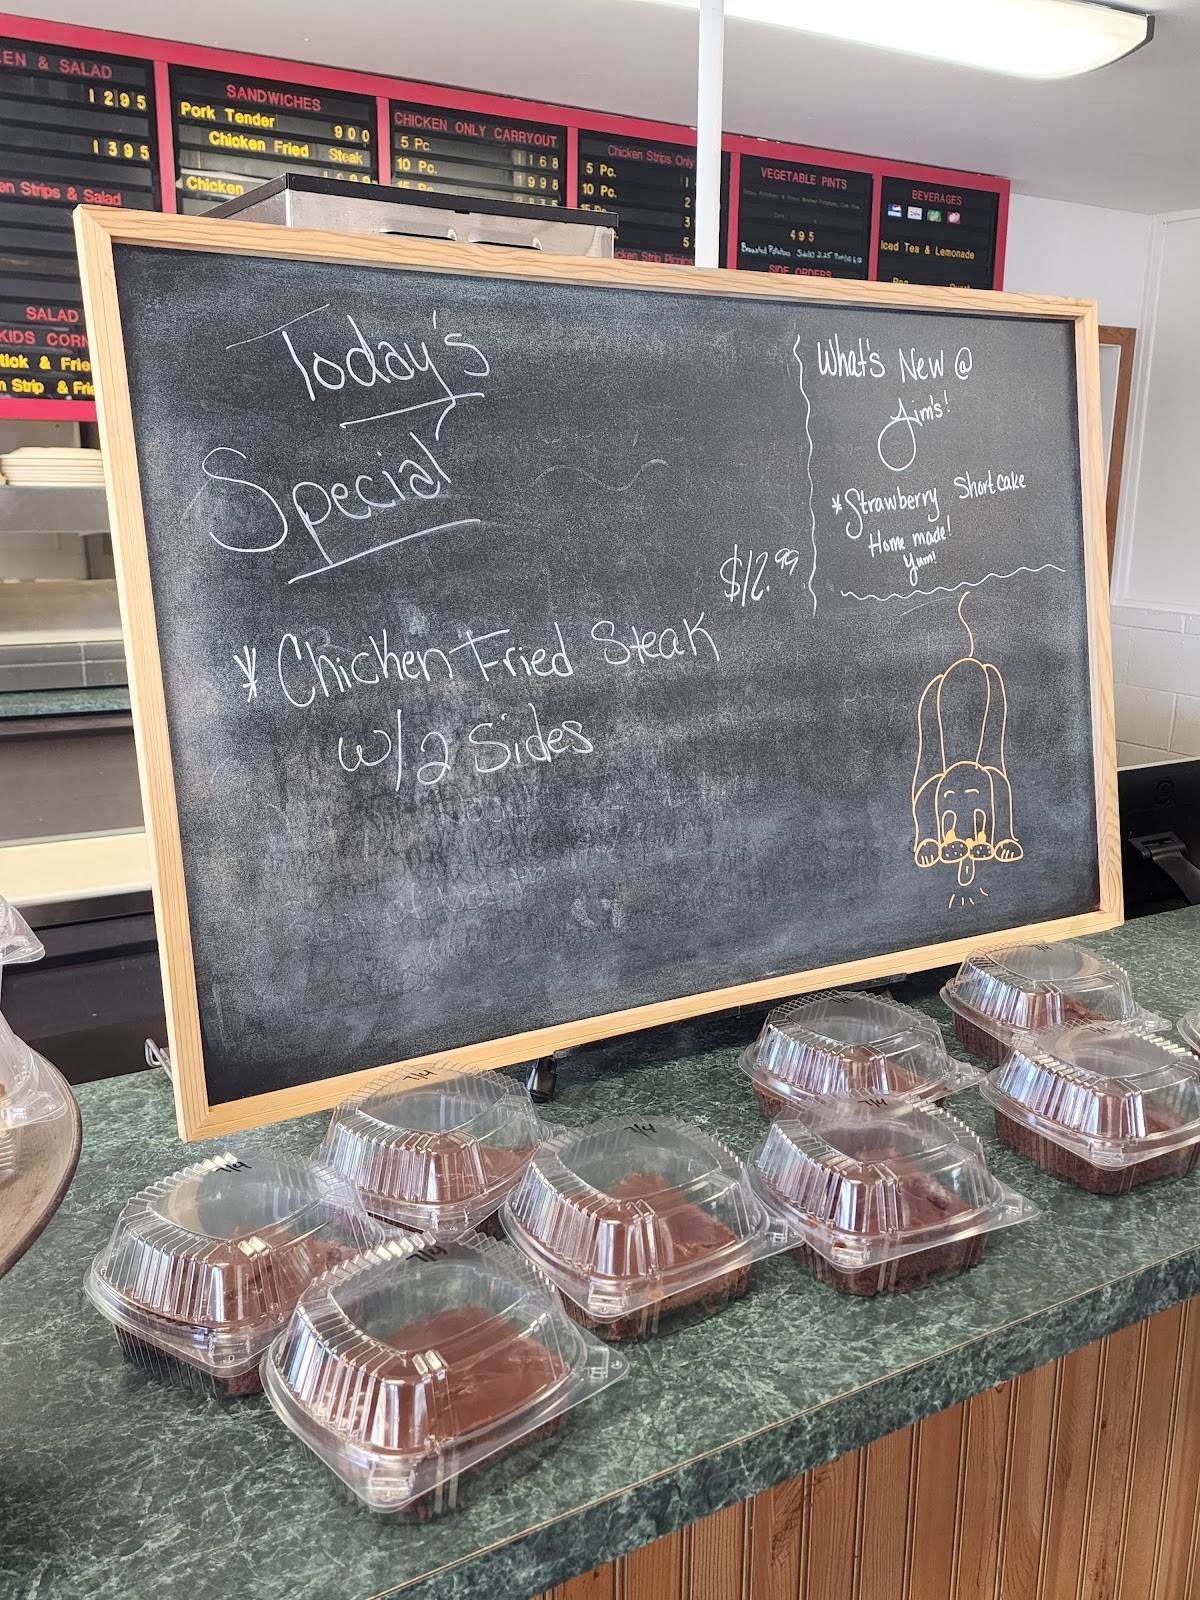 EN & SALAD
1295
1395
en Strips & Salad
SALAD
KIDS CORN
tick & Frie
n Strip & Frie
SANDWICHES
Pork Tender 900
Chicken Fried Steak
Chicken
CHICKEN ONLY CARRYOUT
5 Pc. 1168
10 Pc. 1998
Chicken Strips Only
5 Pc.
10 Pc.
VEGETABLE PINTS
495
SIDE ORDERS
BEVERAGES
Iced Tea & Lemonade
Today's
Special
$12.99
* Chicken Fried Steak
w/2 Sides
What's New @
Jim's!
* Strawberry Shortcake
Home made!
Yum!
7/4
7/4
7/4
7/4
7/4